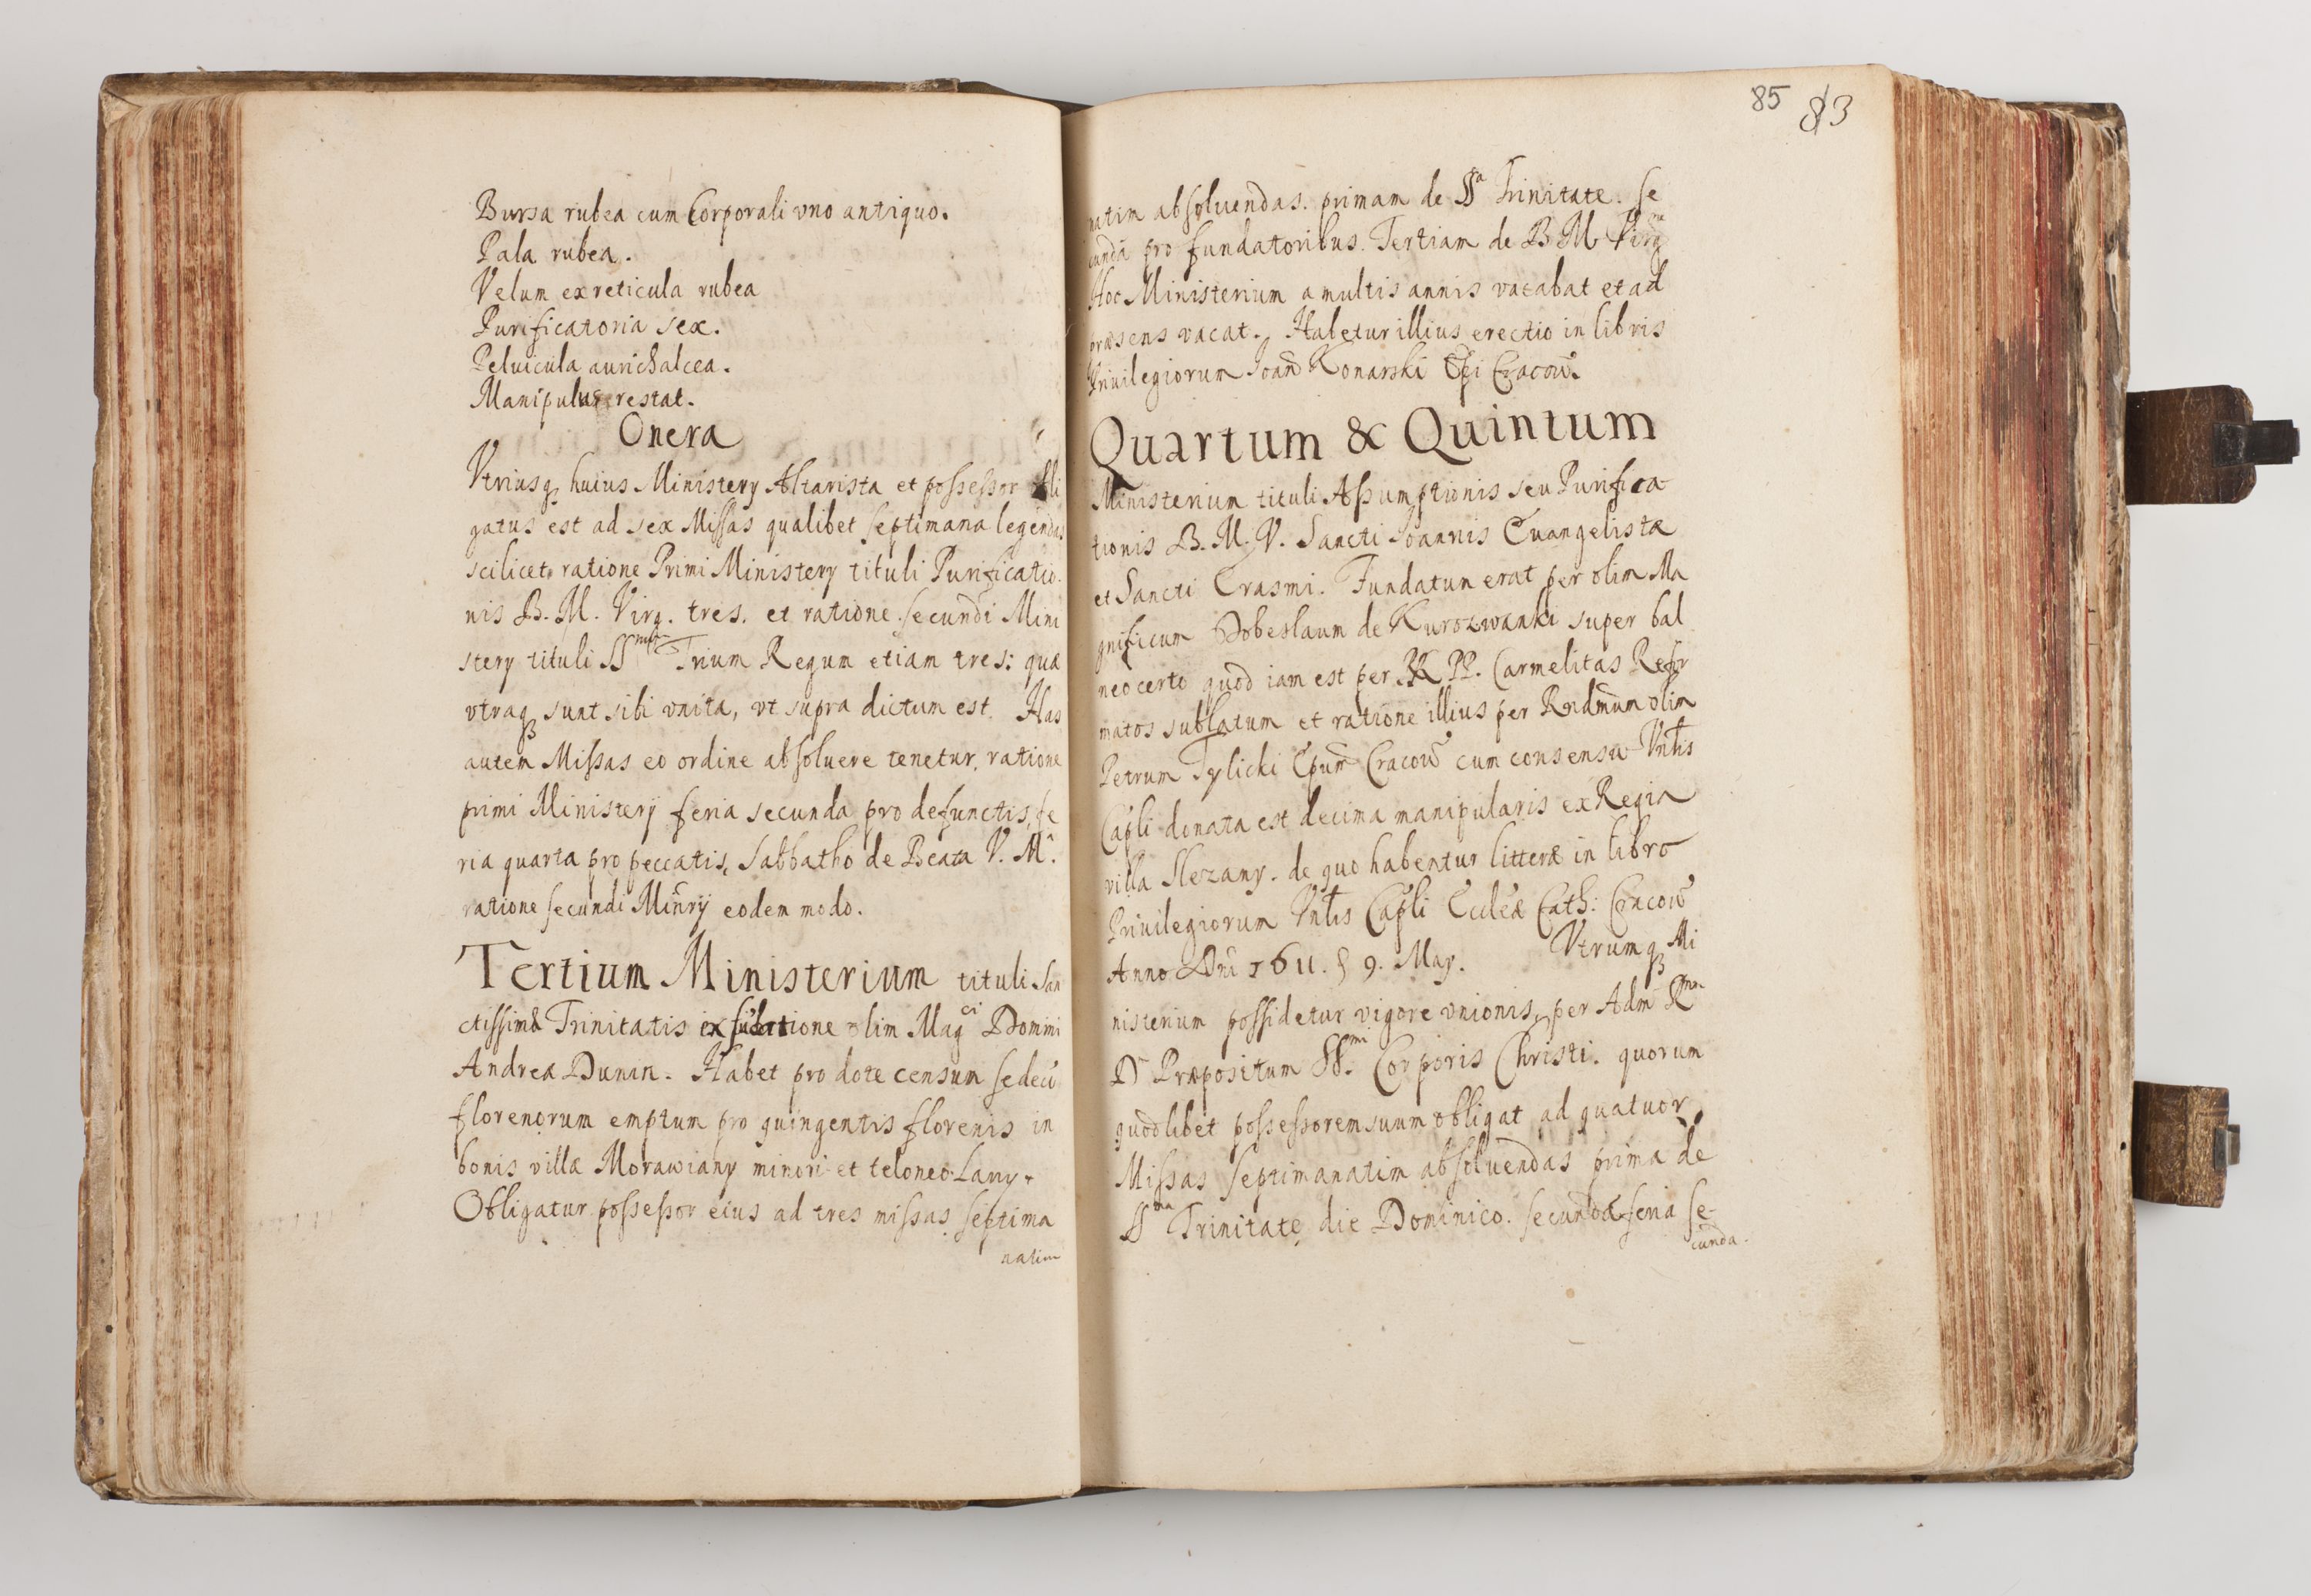 Bursa rubea cum Corporali vno antiquo.
Pala rubea.
Velum ex reticula rubea
Purificatoria sex.
Peluicula aurichalcea.
Manipulus restat.
Onera
Vtriusq huius Ministery Altarista et possessor obli
gatus est ad sex Missas qualibet septimana legendas
scilicet ratione Primi Ministery tituli Purificatio
nis B. M. Virg. tres. et ratione secundi Mini
stery tituli SS Trium Regum etiam tres: quæ
vtraq sunt sibi vnita, vt supra dictum est. Has
autem Missas eo ordine absoluere tenetur, ratione
primi Ministerÿ feria secunda pro defunctis, fe
ria quarta pro peccatis, Sabbatho de Beata V. M.
ratione secundi Minrÿ eodem modo.
Tertium Ministerium tituli San
ctissimæ Trinitatis ex olim Magci Domini
Andreæ Dunin. Habet pro dote censum sedeci
florenorum emptum pro quingentis florenis in
bonis villæ Morawiany minori et teloneo Lany.
Obligatur possessor eius ad tres missas septima
natim
85 83
natim absoluendas. primam de SSa Trinitate. se
cundã pro fundatoribus. Tertiam de B M Virg
Hoc Ministerium a multis annis vacabat et ad
præsens vacat. Habetur illius erectio in libris
Priuilegiorum Joañ Konarski Epi Cracou.
Quartum & Quintum
Ministerium tituli Assumptionis seu Purifica
tionis B. M. V. Sancti Joannis Euangelistæ
et Sancti Erasmi. Fundatum erat per olim Ma
gnificum Dobeslaum de Kurozwanki super bal
neo certo quod iam est per RR PP. Carmelitas Refor
matos sublatum et ratione illius per Rndmum olim
Petrum Tylicki Epum Cracou cum consensu Vntis
Capli donata est decima manipularis ex Regia
villa Slezany. de quo habentur litteræ in libro
Priuilegiorum Vntis Capli Eccleæ Cath: Cracou
Anno Dni 1611. 9. May. Vtrumq Mi
nisterium possidetur vigore vnionis, per Adm Rm
D Præpositum SSmi Corporis Christi. quorum
quodlibet possessorem suum obligat ad quatuor
Missas septimanatim absoluendas prima de
SSma Trinitate die Dominico. secunda feria se-
cunda.